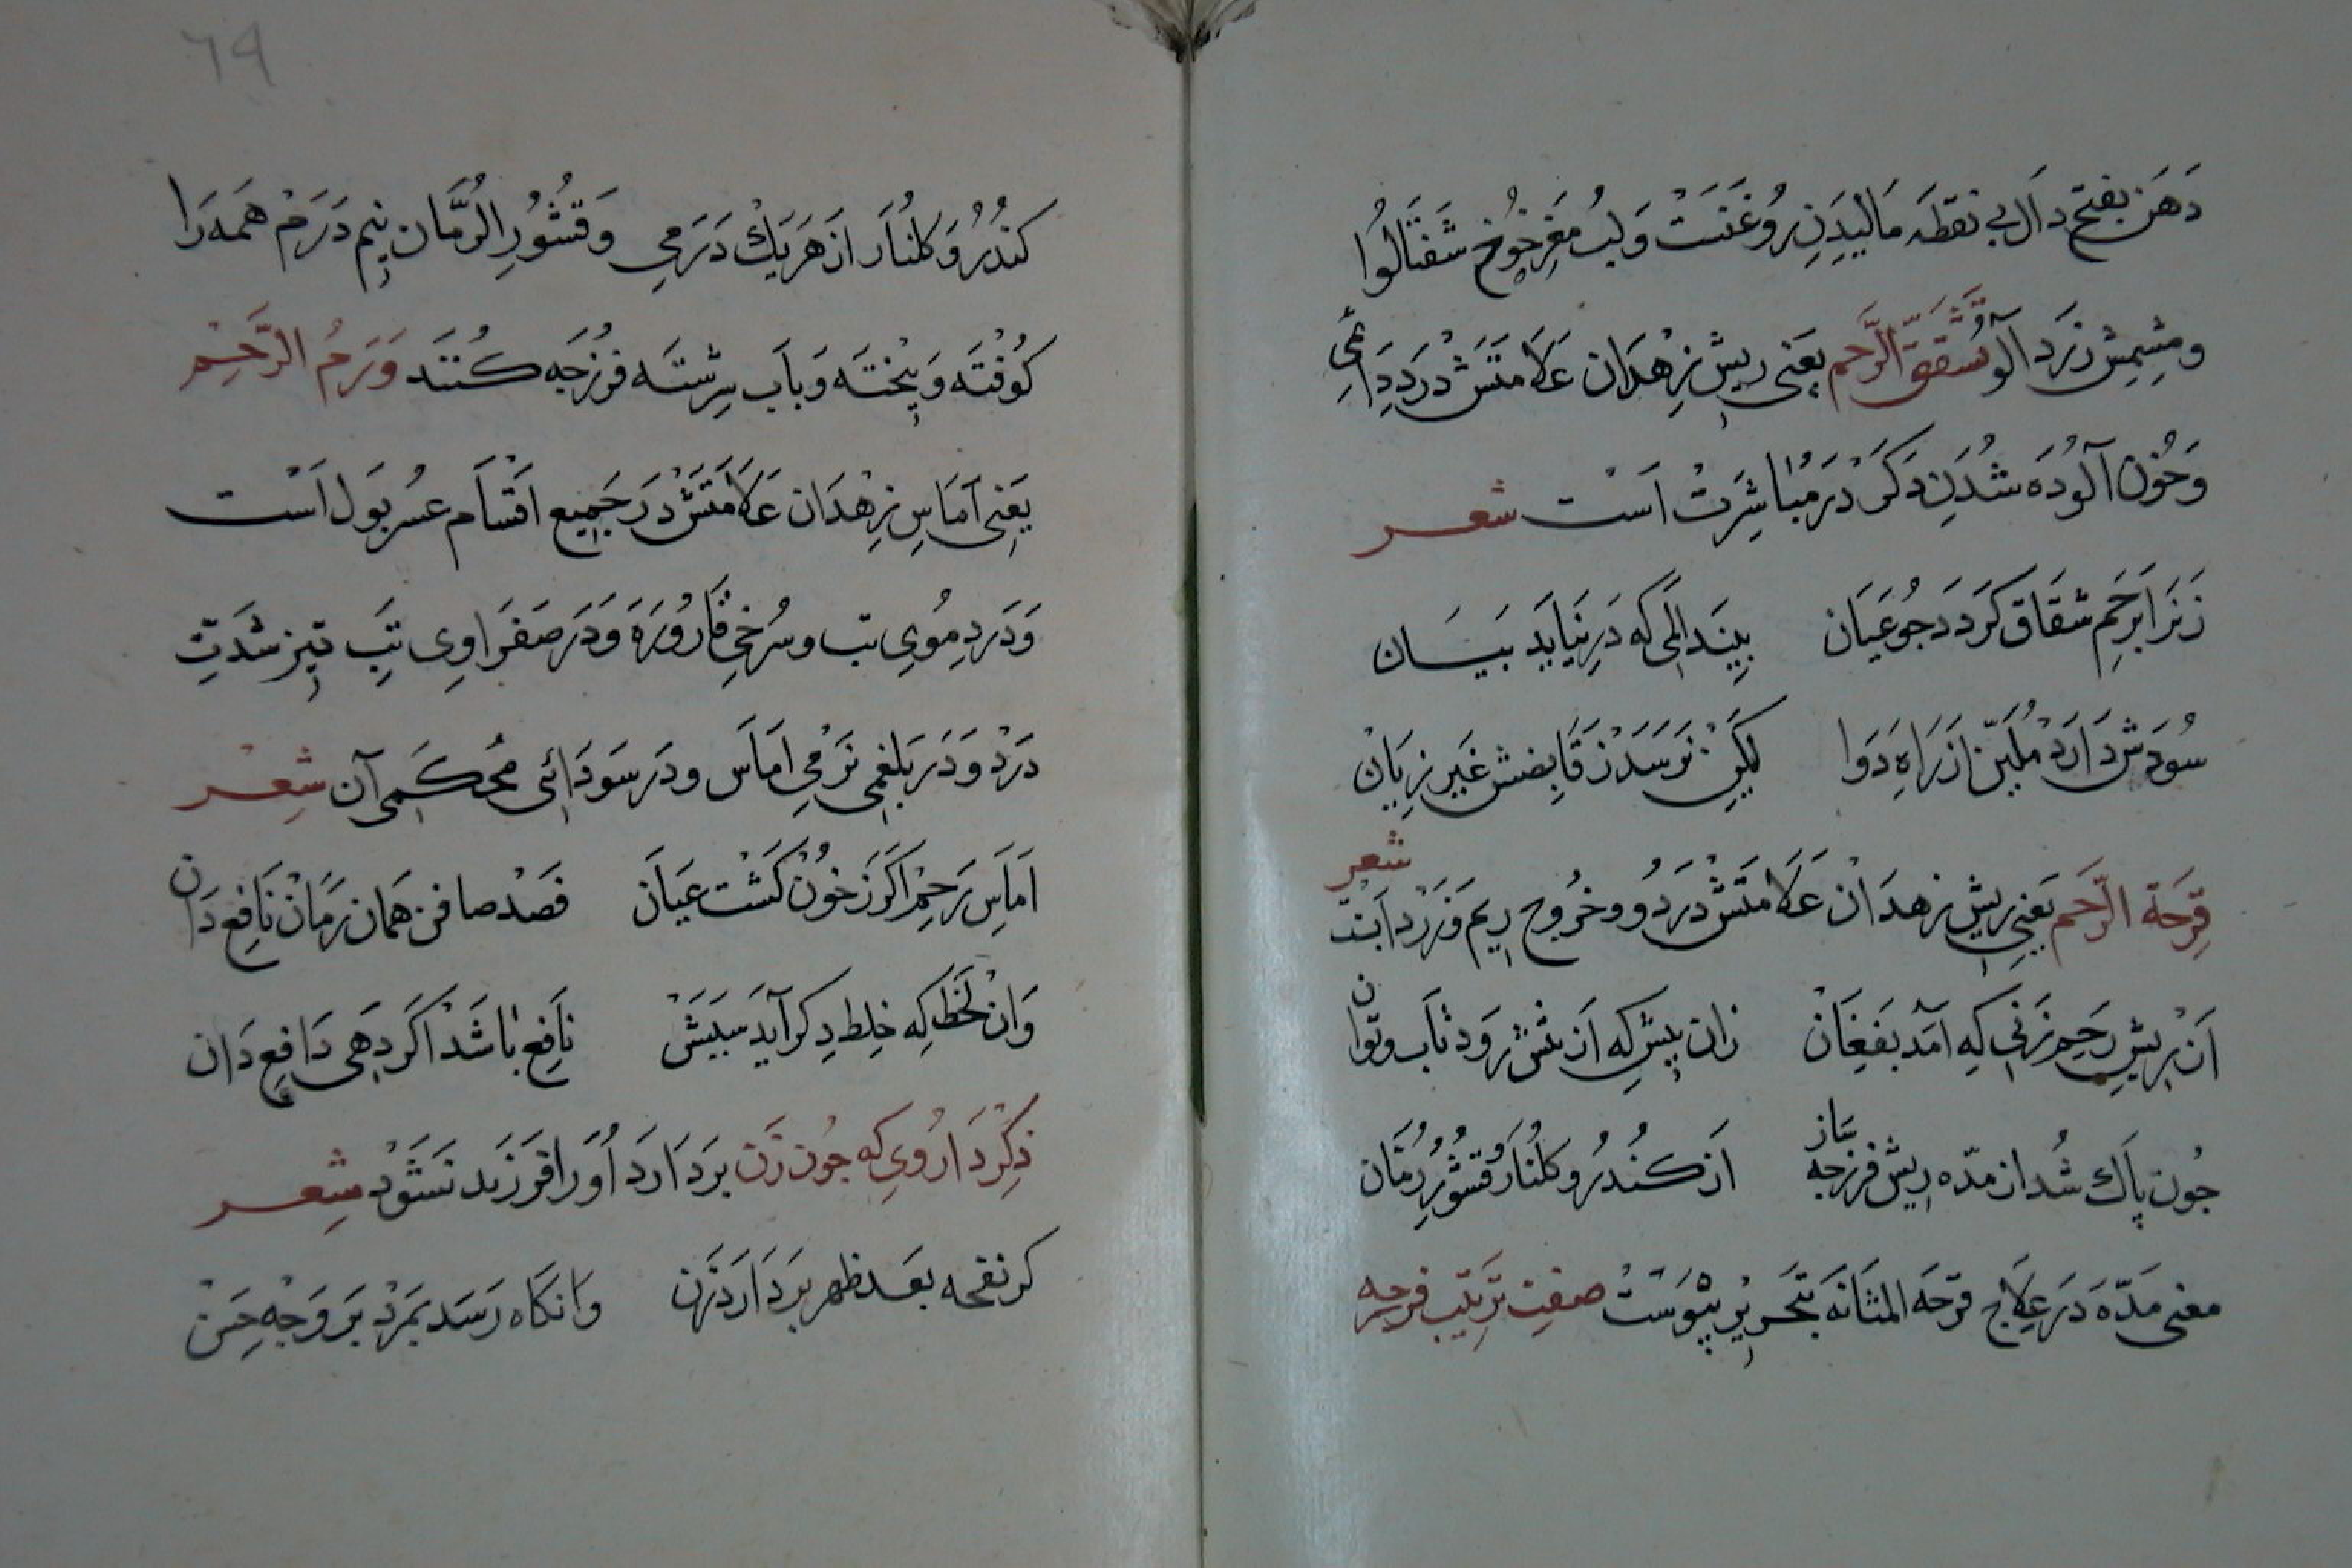 دَهَن بفتح دال بی نقطه مالیدنِ روغنست وَلبُ مغزِ خوخ شفتالُوا
ومِشمِش زرد آلو شقق الرَّحم یعنی ریش زهدان علامتش درد دائمی
وَخُون آلوُده شُدنِ ذکر در مُباشِرتْ اَست شعر
زنرا برحم شقاق کردد جو عَیَان بیند المی که در نیاید بیَان
سُودش دارد مُلیّن از راهِ دَوا لیکِن نرسد ز قابضش غیر زیان
قرحَة الرَّحم یعنی ریش زهدان علامتش درد و وخروج ریم و زردابَست شعر
اَن ریش رحم زنی که آمد بفغان زان پیش که از تنش رود تاب وتوان
جُون پاك شُد از مدّه ریش فرزجه ساز از کُندرُ و کلنار و قشورِ رُمَّان
معنی مَدّه دَر علاج قرحَه المثانَه بتحریر پیوست صفت ترتیب فرزجه
کندُرُ و کلنار از هر یك درمی وَقشورِ الرُّمان نیم درم همه را
کُوفته وَ بیخته وَبآب سرشته فرزجه کُنند وَرمُ الرَّحِم
یعنی آماسِ زهدان علامتش در جمیع اقسام عسر بول است
وَدر دِمُوی تب وسُرخیِ قاروره وَدر صفراوِی تبِ تیز شدّتِ
درد وَدر بلغمی نرمیِ اماس ودر سودائی محکمی آن شعر
اماس رحم اکر ز خون کشت عیان فصد صافن همان زمان نافع دان
وان لحظه که خلط دکر آید سببش نافع باشد اکر دهی دافع دان
ذکر داروی که جون زن بردارد اُورا فرزند نشود شعر
کر نفحه بعد طهر بردارد زن وانکاه رسد بمرد بر وجه حسن
٦٩